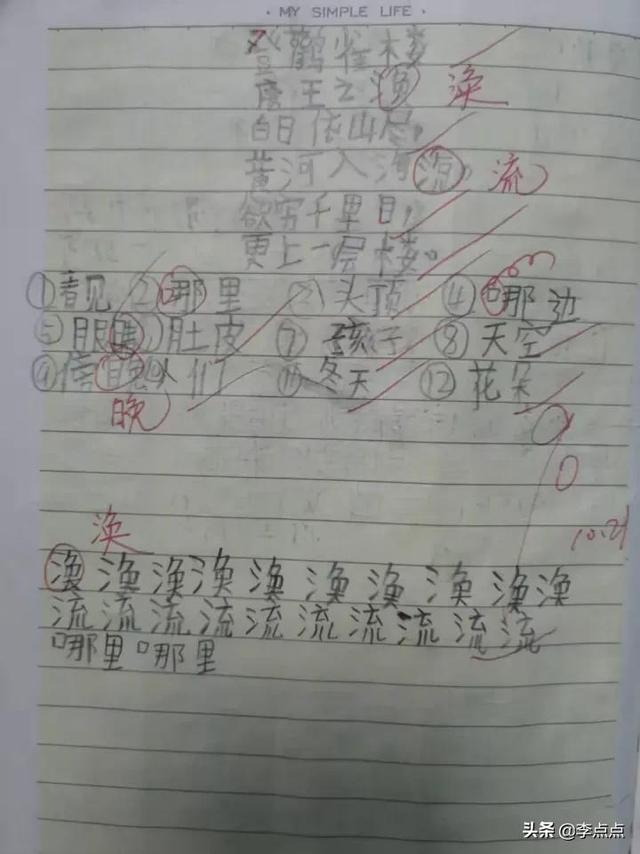 · MY SIMPLE LIFE ·
登鹳雀楼
唐王之涣 涣
白日依山尽,
黄河入海流。 流
欲穷千里目,
更上一层楼。
①看见 ②哪里 ③头顶 ④哪边
⑤眼睛 肚皮 ⑦孩子 ⑧天空
⑨傍晚 们 冬天 ⑫花朵
晚
10.21
涣
涣 涣 涣 涣 涣 涣 涣 涣 涣 涣
流 流 流 流 流 流 流 流 流 流
哪里 哪里
头条 @李点点